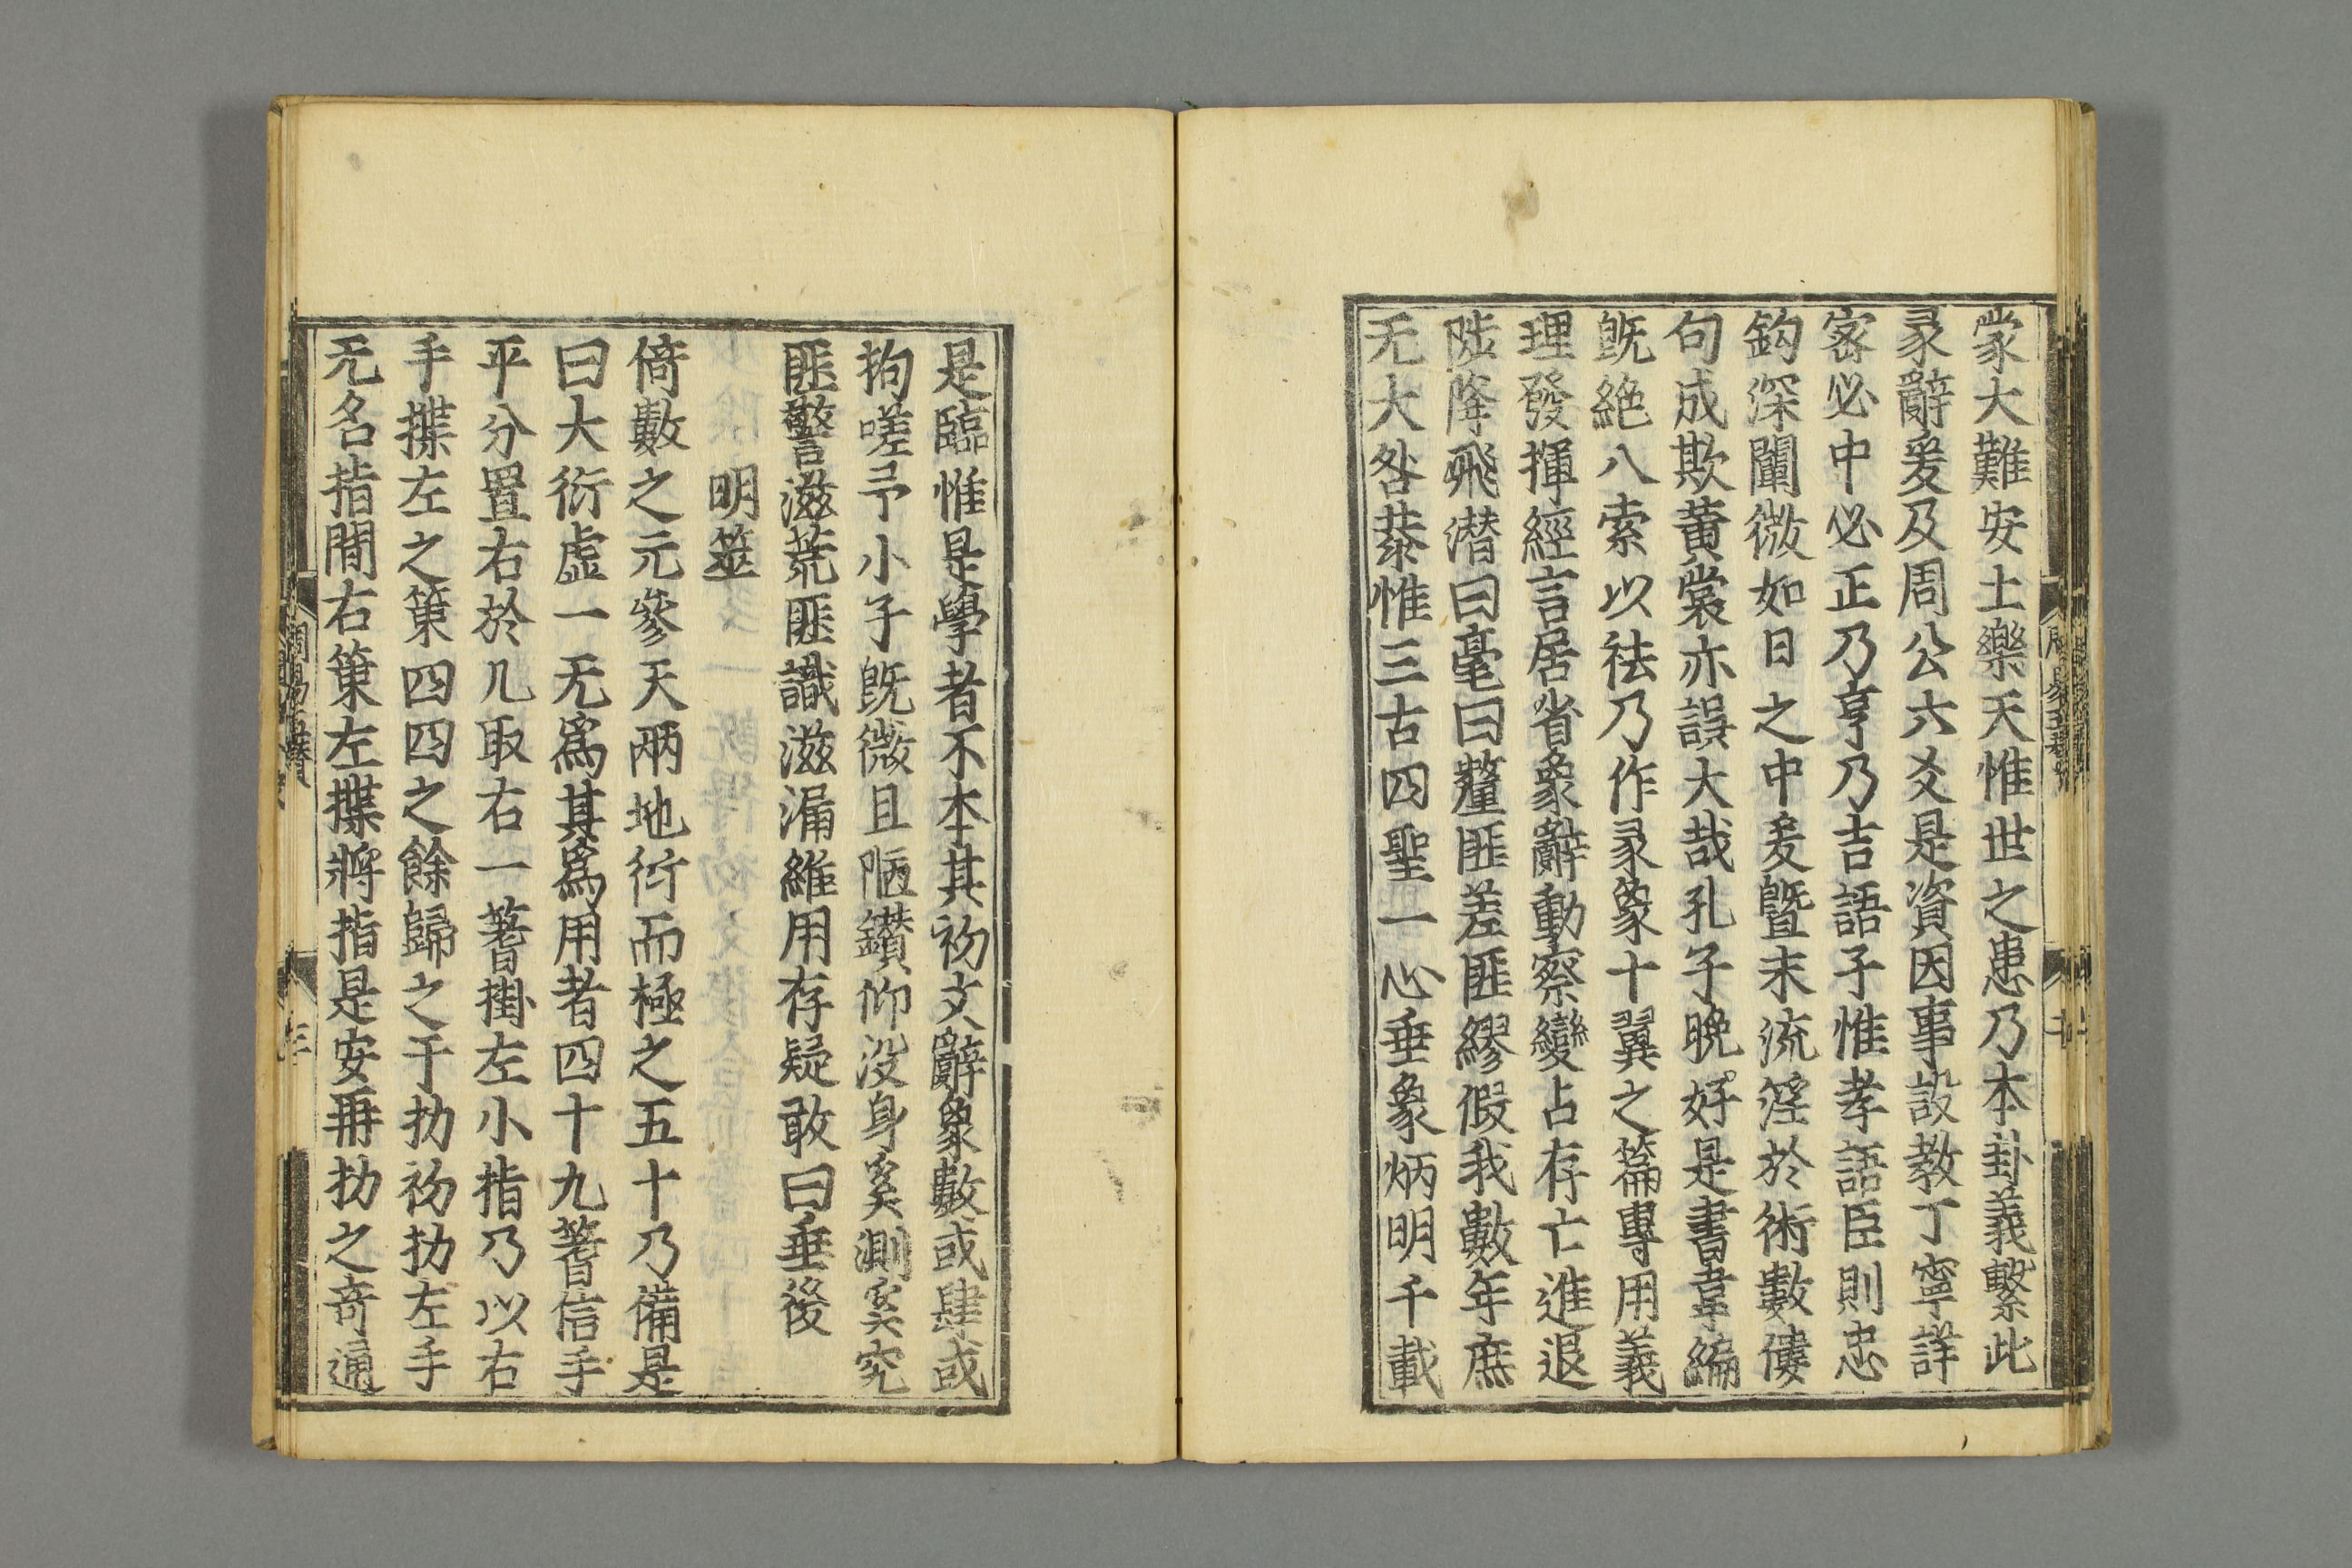 蒙大難安土樂天惟世之患乃本卦義繫此
彖辭爰及周公六爻是資因事設教丁寧詳
宻必中必正乃亨乃吉語子惟孝語臣則忠
鈎深闡微如日之中爰曁末流滛於術數僂
句成欺黄裳亦誤大哉孔子晚好是書韋編
旣絶八索以袪乃作彖象十翼之篇專用義
理發揮經言居省象辭動察變占存亡進退
陟降飛潜曰毫曰釐匪差匪繆假我數年庶
无大咎恭惟三古四聖一心垂象炳明千載
是臨惟是學者不本其初文辭象數或肆或
拘嗟予小子旣微且陋鑚仰没身奚測奚究
匪警滋荒匪識滋漏維用存疑敢曰垂後
明筮
倚數之元參天兩地衍而極之五十乃備是
曰大衍虚一无爲其爲用者四十九蓍信手
平分置右於几取右一蓍掛左小指乃以右
手揲左之策四四之餘歸之于扐初扐左手
无名指間右策左揲將指是安再扐之奇通